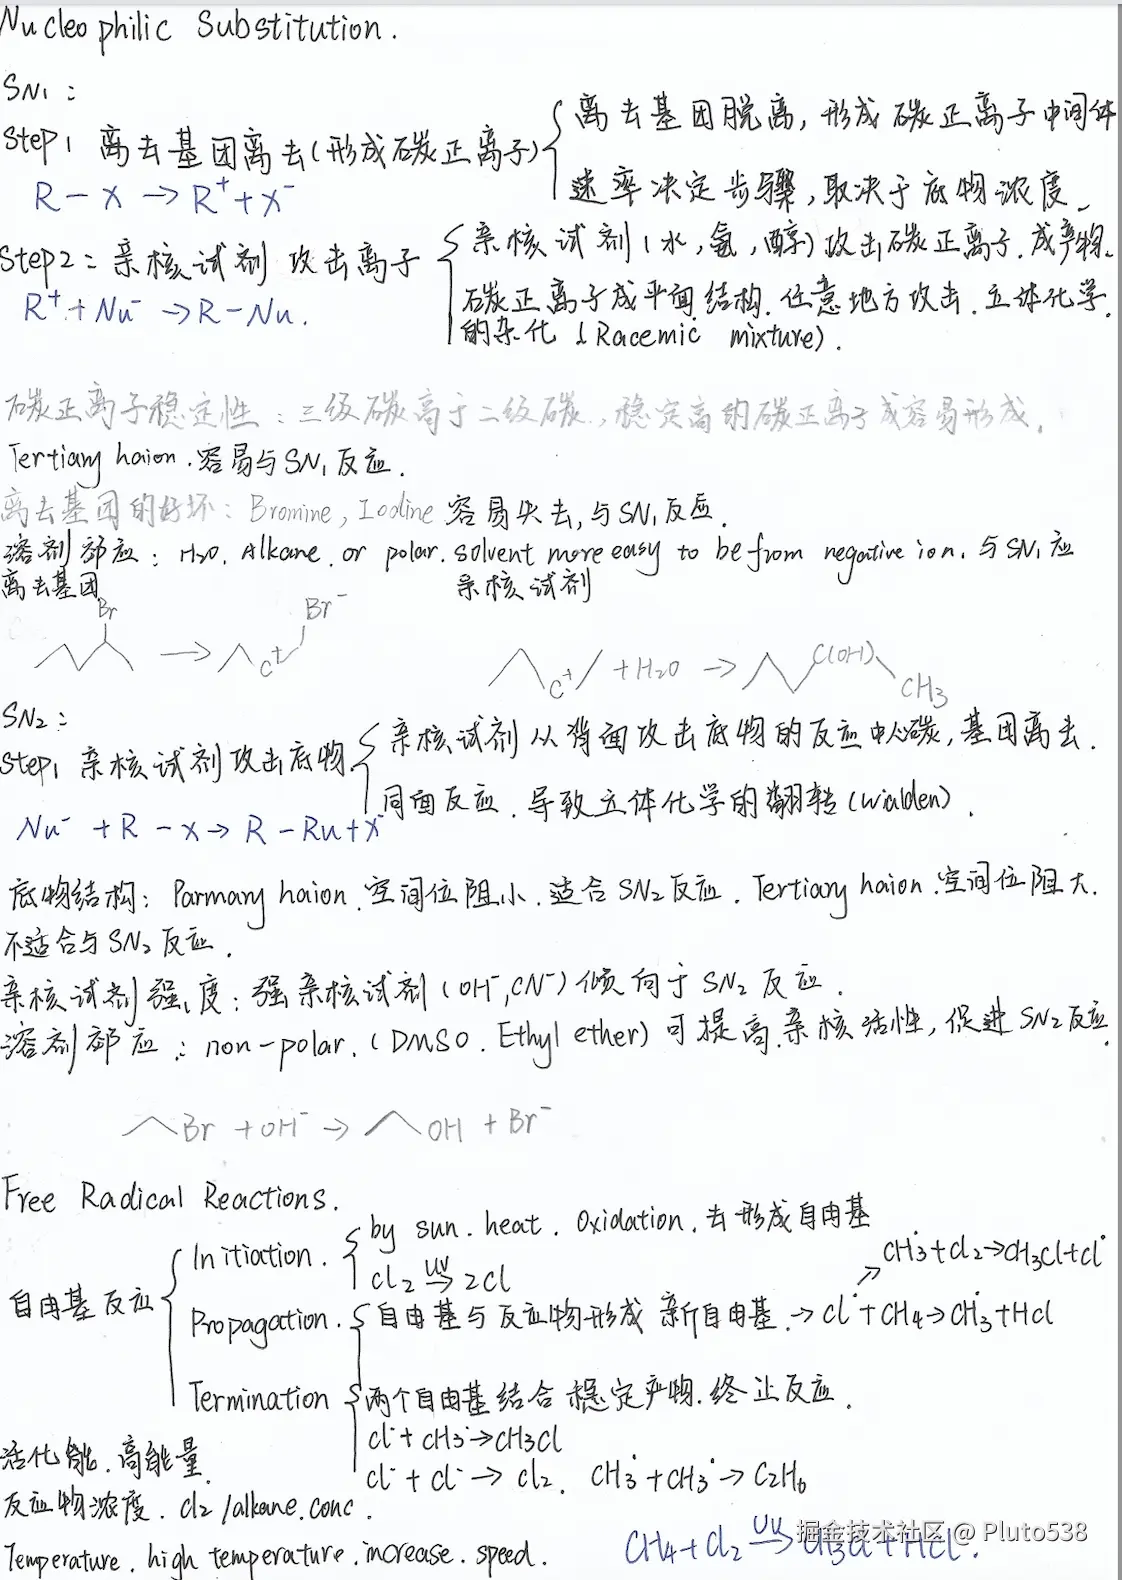 Nucleophilic Substitution.
SN1:
Step1 离去基团离去(形成碳正离子)
离去基团脱离,形成碳正离子中间体
速率决定步骤,取决于底物浓度.
R-X→R⁺+X⁻
Step2: 亲核试剂攻击离子
亲核试剂(水,氨,醇)攻击碳正离子.成产物.
R⁺+Nu⁻→R-Nu.
碳正离子成平面结构.任意地方攻击.立体化学.
的杂化(Racemic mixture).
碳正离子稳定性:三级碳高于二级碳.,稳定高的碳正离子成容易形成.
Tertiary haion.容易与SN1反应.
离去基团的好坏:Bromine, Iodine容易失去,与SN1反应.
溶剂郊应: H2O. Alkane. or polar. solvent more easy to be from negative ion. 与SN1应
离去基团
亲核试剂
Br → C⁺ Br⁻
C⁺ +H2O → C(OH) CH3
SN2:
Step1 亲核试剂攻击底物.
亲核试剂从背面攻击底物的反应中心碳,基团离去.
同面反应.导致立体化学的翻转(Walden).
Nu⁻ +R-X→R-Ru+X⁻
底物结构: Parmary haion.空间位阻小.适合SN2反应. Tertiary haion.空间位阻大.
不适合与SN2反应.
亲核试剂强度:强亲核试剂(OH⁻,CN⁻)倾向于SN2反应.
溶剂郊应: non-polar.(DMSO. Ethyl ether)可提高亲核活性,促进SN2反应.
Br +OH⁻→ OH + Br⁻
Free Radical Reactions.
自由基反应
Initiation.
by sun. heat. Oxidation.去形成自由基
Cl2 UV→ 2Cl
CH3˙+Cl2→CH3Cl+Cl˙
Propagation.
自由基与反应物形成新自由基.→Cl˙+CH4→CH3˙+HCl
Termination
两个自由基结合稳定产物.终止反应.
Cl˙+CH3˙→CH3Cl
Cl˙+Cl˙→Cl2. CH3˙+CH3˙→C2H6
活化能.高能量.
反应物浓度. Cl2/alkane.conc.
Temperature. high temperature. increase. speed.
CH4+Cl2 UV→ CH3Cl+HCl.
掘金技术社区 @ Pluto538